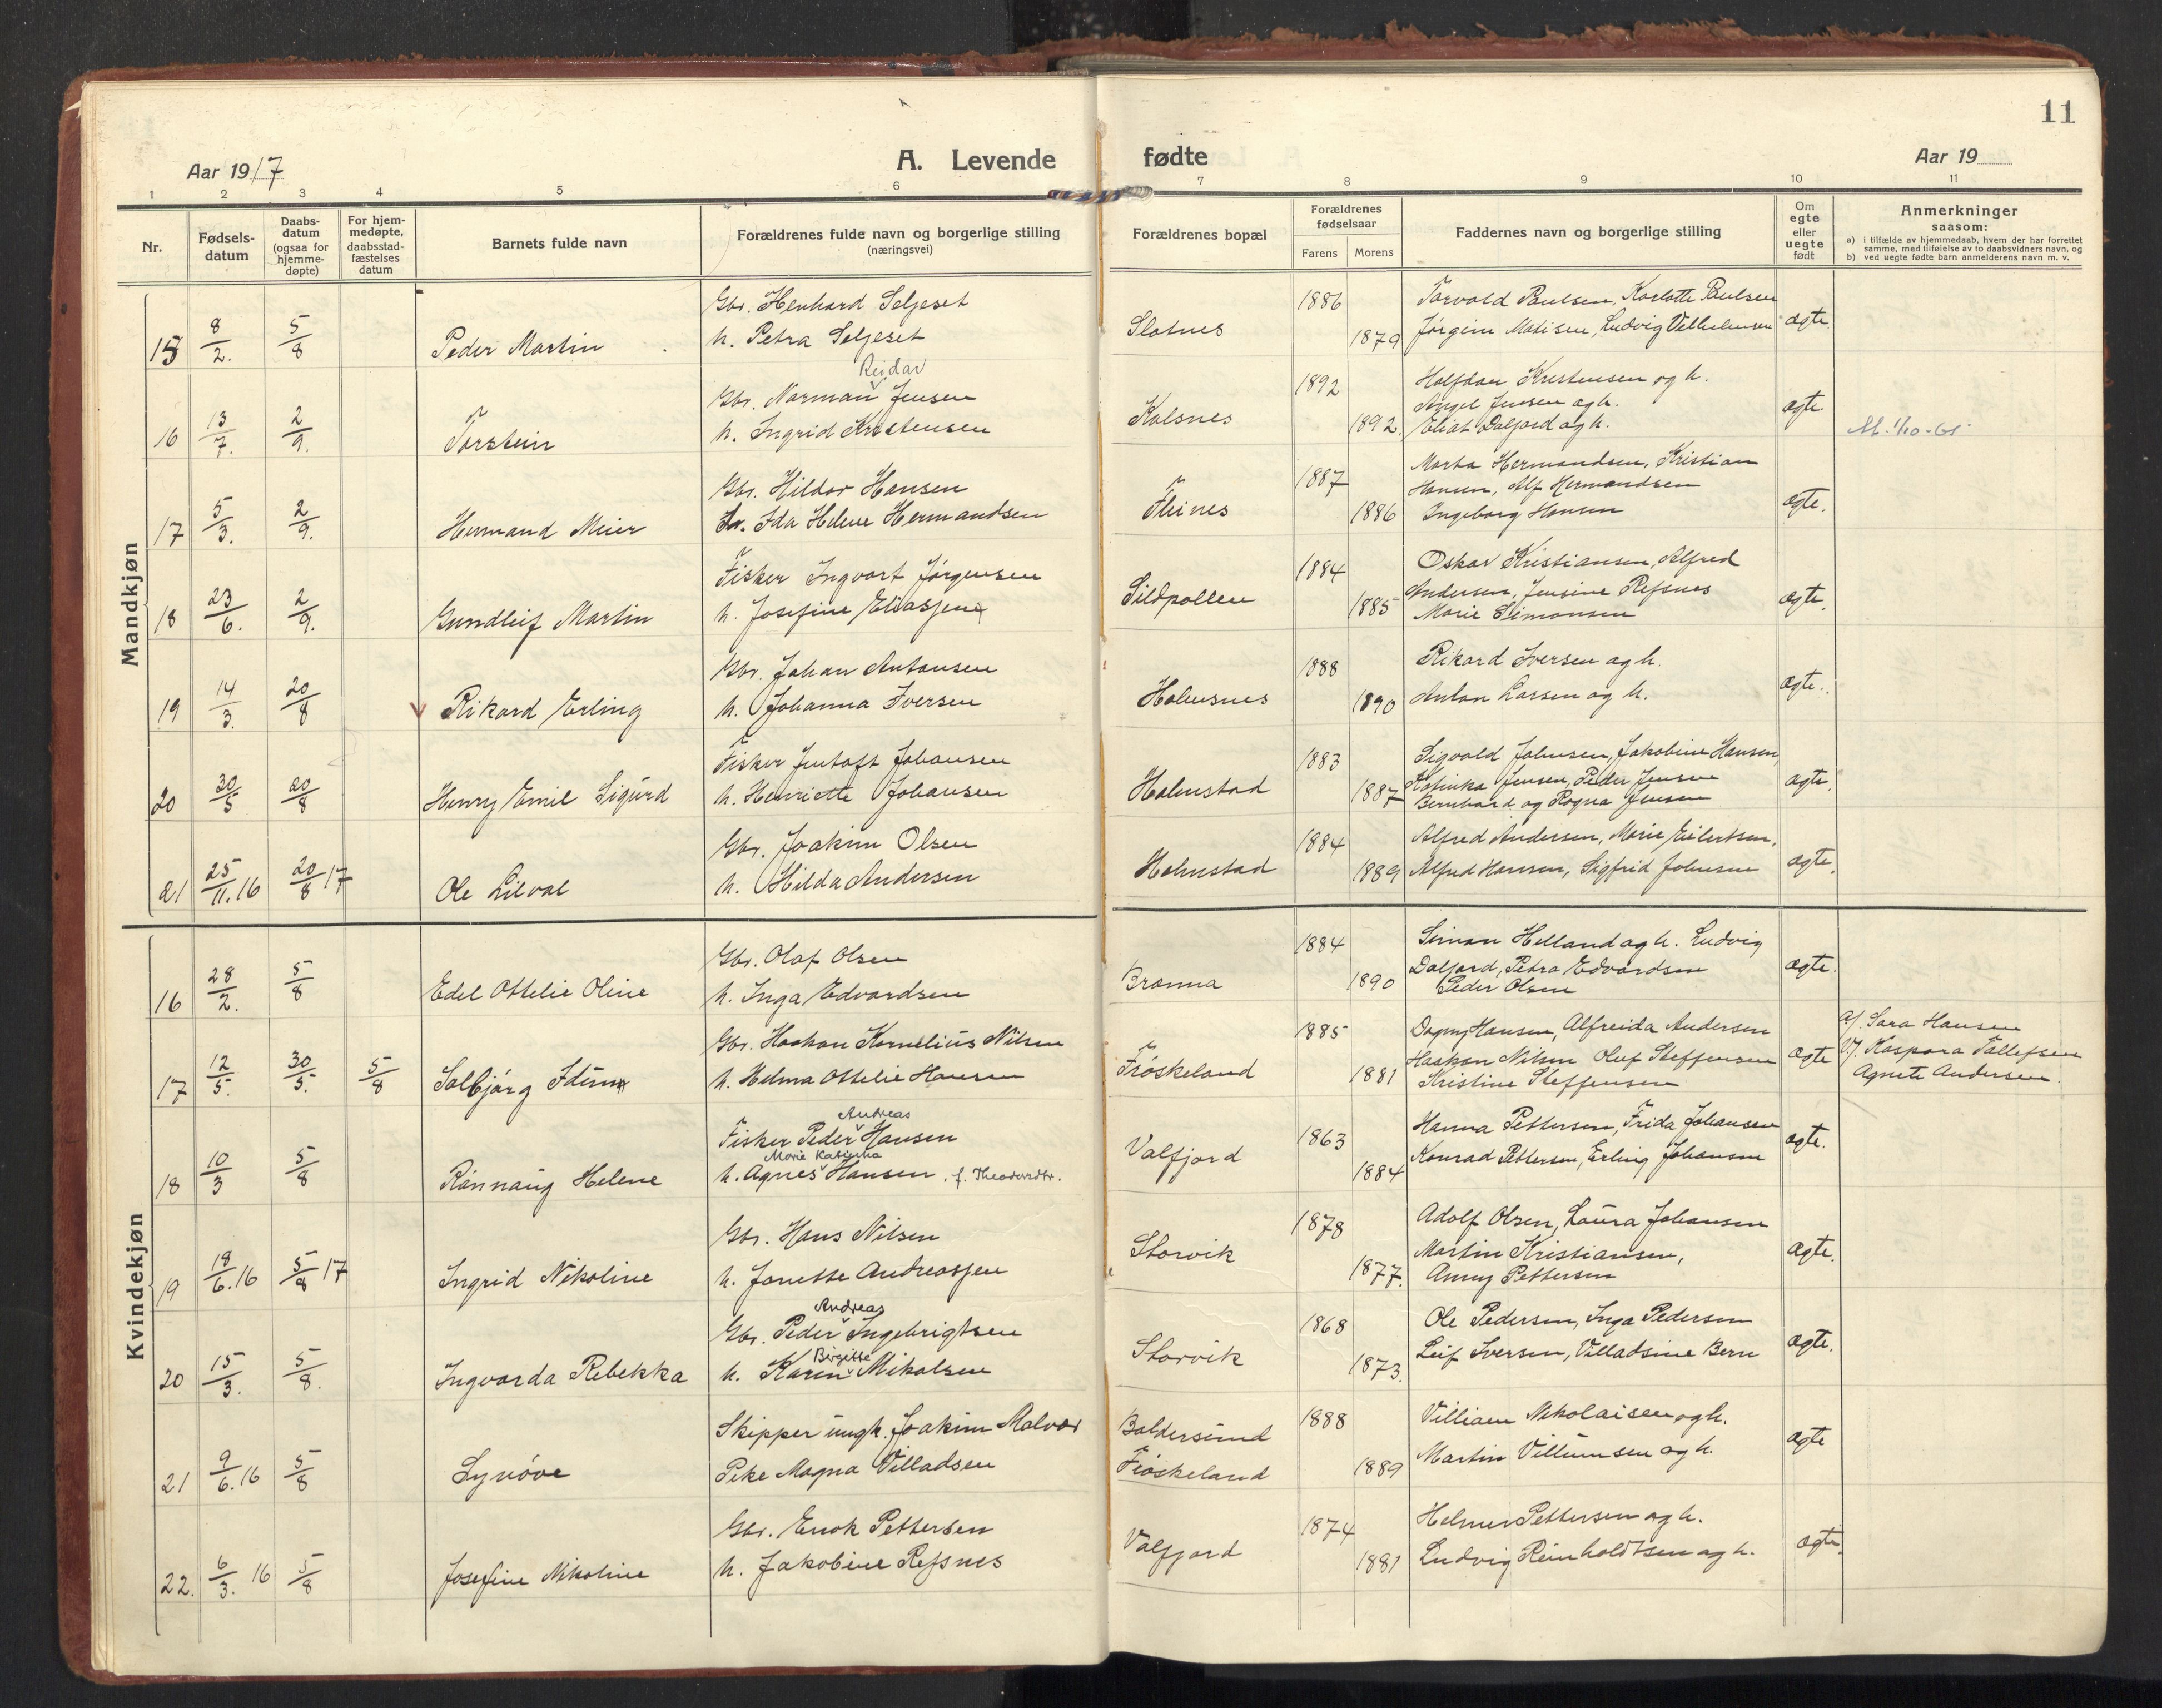 11
Aar 1917
A. Levende fødte
Aar 19
1 2 3 4 5 6 7 8 9 10 11
Nr.
Fødsels-
datum
Daabs-
datum
(ogsaa for
hjemme-
døpte)
For hjem-
medøpte,
daabsstad-
fæstelses
datum
Barnets fulde navn
Forældrenes fulde navn og borgerlige stilling
(næringsvei)
Forældrenes bopæl
Forældrenes
fødselsaar
Farens Morens
Faddernes navn og borgerlige stilling
Om
egte
eller
uegte
født
Anmerkninger
saasom:
a) i tilfælde av hjemmedaab, hvem der har forrettet
samme, med tilføielse av to daabsvidners navn, og
b) ved uegte fødte barn anmelderens navn m. v.
Mandkjøn
15 8/2. 5/8 Peder Martin
Gbr. Henhard Seljeset
h. Petra Seljeset
Slotnes 1886 1879
Torvald Paulsen, Karlotte Paulsen
Jørgine Madisen, Ludvig Vilhelmsen
ægte.
16 13/7. 2/9. Torstein
Reidar
Gbr. Norman Jensen
h. Ingrid Kristensen
Kalsnes 1892 1892.
Halfdan Kristensen og h.
Angel Jensen og h.
Eliot Dalfjord og h.
ægte
17 5/3. 2/9. Hermand Meier
Gbr. Hildor Hansen
h. Ida Helene Hermandsen
Fleines 1887 1886
Marta Hermandsen, Kristian
Hansen, Alf Hermandsen
Ingeborg Hansen
ægte.
18 23/6. 2/9. Gundleif Martin
Fisker Ingvart Jørgensen
h. Josefine Eliassen
Sildpollen 1884 1885
Oskar Kristiansen, Alfred
Andersen, Jensine Refsnes
Marie Simonsen
ægte.
19 14/3. 20/8 Rikard Erling
Gbr. Johan Antonsen
h. Johanna Iversen
Holmsnes 1888 1890
Rikard Iversen og h.
Anton Larsen og h.
ægte.
20 30/5 20/8 Henry Emil Sigurd
Fisker Jentoft Johansen
h. Henriette Johansen
Holmstad 1883 1887
Sigvald Johnsen, Jakobine Hansen,
Katinka Jensen, Peder Jensen
Bernhard og Ragna Jensen
ægte.
21 25/11.16 20/8 17 Ole Lilval
Gbr. Joakim Olsen
h. Hilda Andersen
Holmstad 1884 1889
Alfred Andersen, Marie Eilertsen,
Alfred Hansen, Sigfrid Johnsen
ægte.
Kvindekjøn
16 28/2. 5/8 Edel Ottelie Oline
Gbr. Olaf Olsen
h. Inga Edvardsen
Brønna 1884 1890
Simon Helland og h. Ludvig
Dalfjord, Petra Edvardsen
Peder Olsen
ægte.
17 12/5. 30/5. 5/8 Solbjørg Idun
Gbr. Haakon Kornelius Nilsen
h. Helma Ottelie Hansen
Frøskeland 1885 1881
Dagny Hansen, Alfreida Andersen
Haakon Nilsen Oluf Steffensen
Kristine Steffensen
ægte
a/. Sara Hansen
V/. Kaspara Tollefsen
Agnete Andersen.
18 10/3 5/8 Rannaug Helene
Andreas
Fisker Peder Hansen
Marie Katinka
h. Agnes Hansen, f. Theodorsdtr.
Valfjord 1863 1884
Hanna Pettersen, Frida Johansen
Konrad Pettersen, Erling Johansen
ægte.
19 18/6.16 5/8 17 Ingrid Nikoline
Gbr. Hans Nilsen
h. Janette Andreassen
Storvik 1878 1877.
Adolf Olsen, Laura Johansen
Martin Kristiansen,
Anny Pettersen
ægte.
20 15/3. 5/8. Ingvarda Rebekka
Andreas
Gbr. Peder Ingebrigtsen
Birgitte
h. Karen Mikalsen
Storvik 1868 1873.
Ole Pedersen, Inga Pedersen
Leif Iversen, Villadsine Bern
ægte.
21 9/6.16 5/8 Synøve
Skipper ungk. Joakim Malvær
Pike Magna Villadsen
Baldersund
Frøskeland
1888 1889
Villiam Nikolaisen og h.
Martin Villumsen og h.
ægte
22. 6/3. 16 5/8 Josefine Nikoline
Gbr. Enok Pettersen
h. Jakobine Refsnes
Valfjord 1874 1881
Helmer Pettersen og h.
Ludvig Reinholdtsen og h.
ægte.